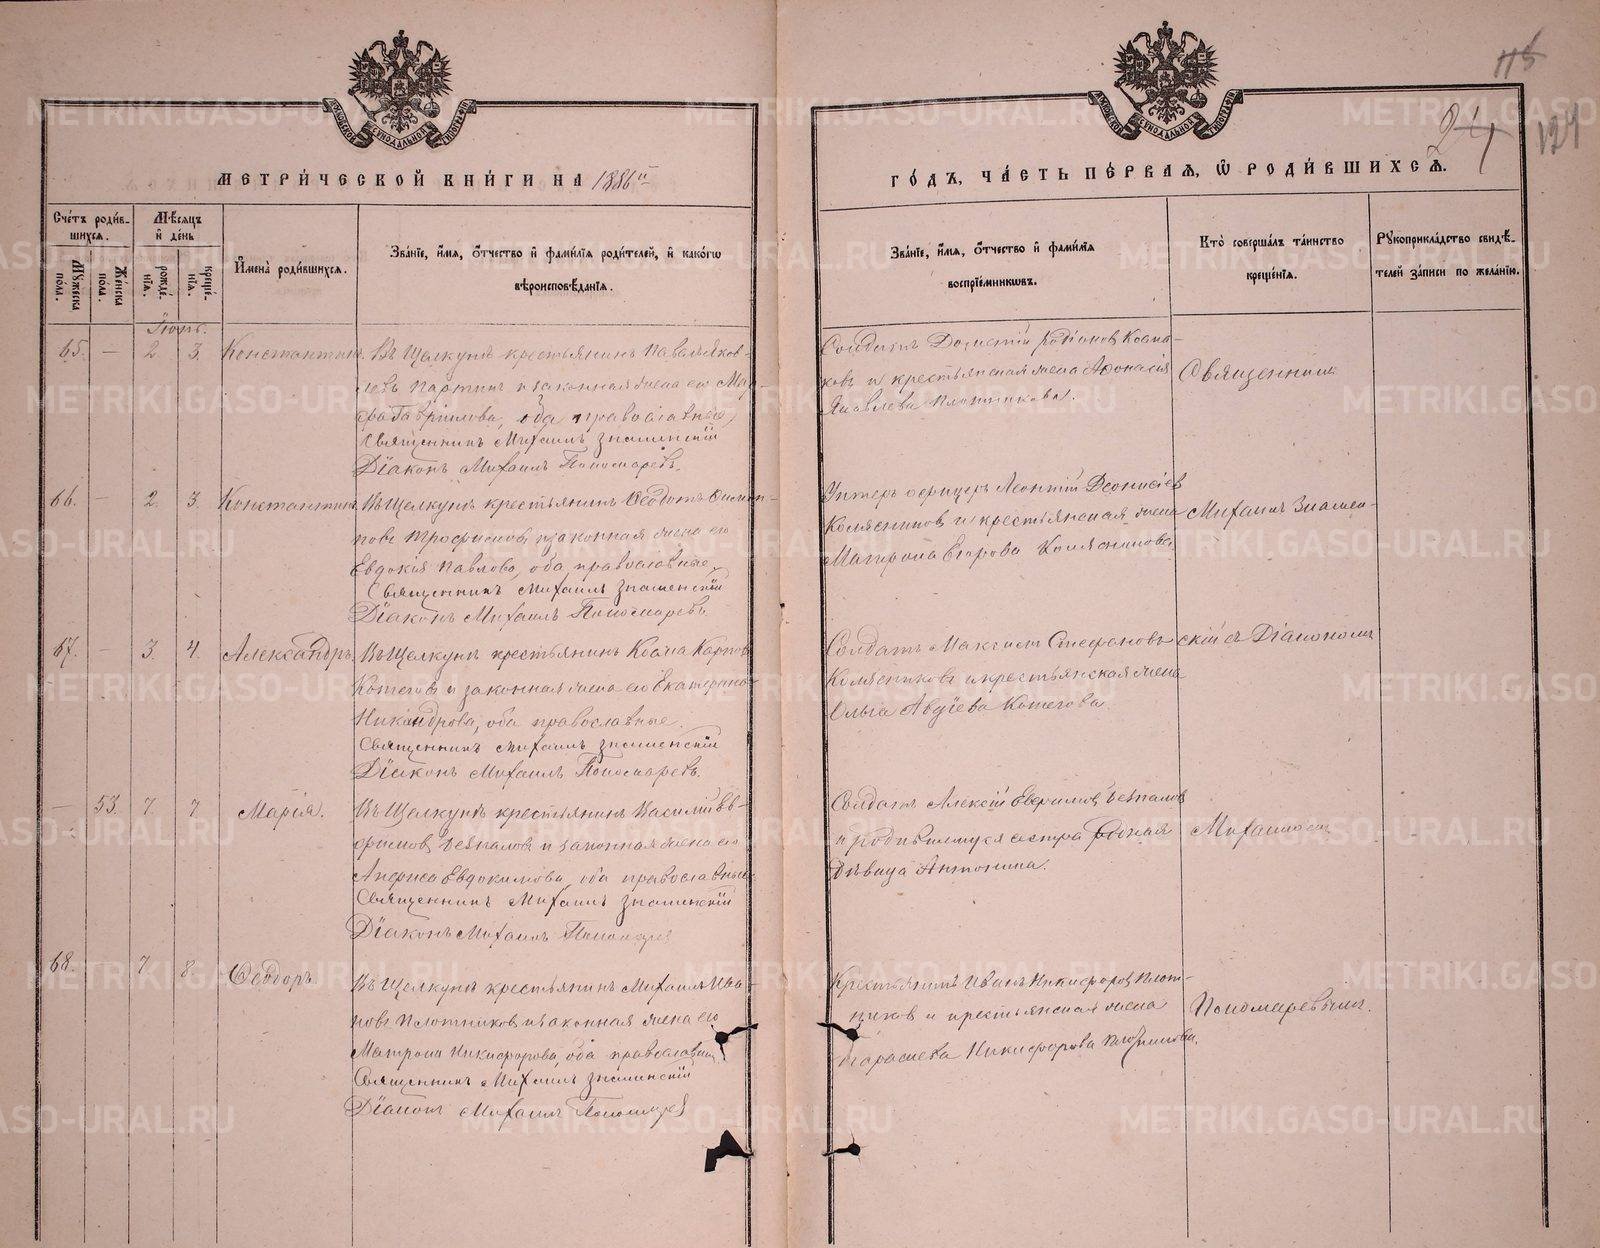 115
24
124
МОСКОВСКОЙ СѴНОДАЛЬНОЙ ТИПОГРАФІИ
МОСКОВСКОЙ СѴНОДАЛЬНОЙ ТИПОГРАФІИ
МЕТРИ́ЧЕСКОЙ КНИ́ГИ НА 1886й
ГО́ДЪ, ЧА́СТЬ ПЕ́РВАѦ, Ѡ҆ РОДИ́ВШИХСѦ.
Сче́тъ роди́в-
шихсѧ.
Мꙋ́жеска по́ла.
Же́нска по́ла.
Мѣ́сѧцъ и҆ де́нь
рожде́-нїѧ.
креще́-нїѧ.
И҆мена̀ роди́вшихсѧ.
Зва́нїе, и҆́мѧ, ѻ҆́тчество и҆ фами́лїѧ роди́телей, и҆ како́гѡ
вѣроисповѣ́данїѧ.
Зва́нїе, и҆́мѧ, ѻ҆́тчество и҆ фами́лїѧ
воспрїе́мникѡвъ.
Кто̀ соверша́лъ та́инство
креще́нїѧ.
Рꙋкоприкла́дство свидѣ́-
телей за́писи по жела́нїю.
Іюнь.
65. — 2. 3. Константинъ. Въ Щелкунѣ крестьянинъ Павелъ Яков-
левъ Партинъ и законная жена его Мар-
фа Гаврилова, оба православные,
Священникъ Михаилъ Знаменскій
Діаконъ Михаилъ Пономаревъ.
Солдатъ Дометій Родіонов
и крестьянская жена Афонасія
Яковлева Плотникова.
Священник
66. — 2. 3. Константинъ. Въ Щелкунѣ крестьянинъ Ѳеодотъ
Трофимовъ и законная жена его
Евдокія Павлова, оба православные,
Священникъ Михаилъ Знаменскій
Діаконъ Михаилъ Пономаревъ
Унтеръ офицеръ Леонтій Деонисіев
Колясников и крестьянская жена
Матрона Егорова Колясникова.
Михаил Знамен-
67. — 3. 4. Александръ. Въ Щелкунѣ крестьянинъ Косма Карпов
Котегов и законная жена его Екатерина
Никандрова, оба православные.
Священникъ Михаилъ Знаменскій
Діаконъ Михаилъ Пономаревъ.
Солдатъ Максимъ Стефановъ
Колясниковъ и крестьянская жена
Ольга Авдіева Котегова.
скій съ Діакономъ
— 53. 7. 7. Марія. Въ Щелкунѣ крестьянинъ Василій Ев-
фимов Безпалов и законная жена его
Анфиса Евдокимова, оба православные
Священникъ Михаилъ Знаменскій
Діаконъ Михаилъ Пономарев
Солдатъ Алексій Евфимов Безпалов
и родившемуся сестра родная
дѣвица Антонина.
Михаиломъ
68. — 7. 8. Ѳеодоръ. Въ Щелкунѣ крестьянинъ Михаилъ Ива-
новъ Плотников и законная жена его
Матрона Никифорова, оба православные
Священникъ Михаилъ Знаменскій
Діаконъ Михаилъ Пономарев
Крестьянинъ Иванъ Никифоров Плот-
ников и крестьянская жена
Параскева Никифорова Плотникова.
Пономаревымъ.
METRIKI.GASO-URAL.RU